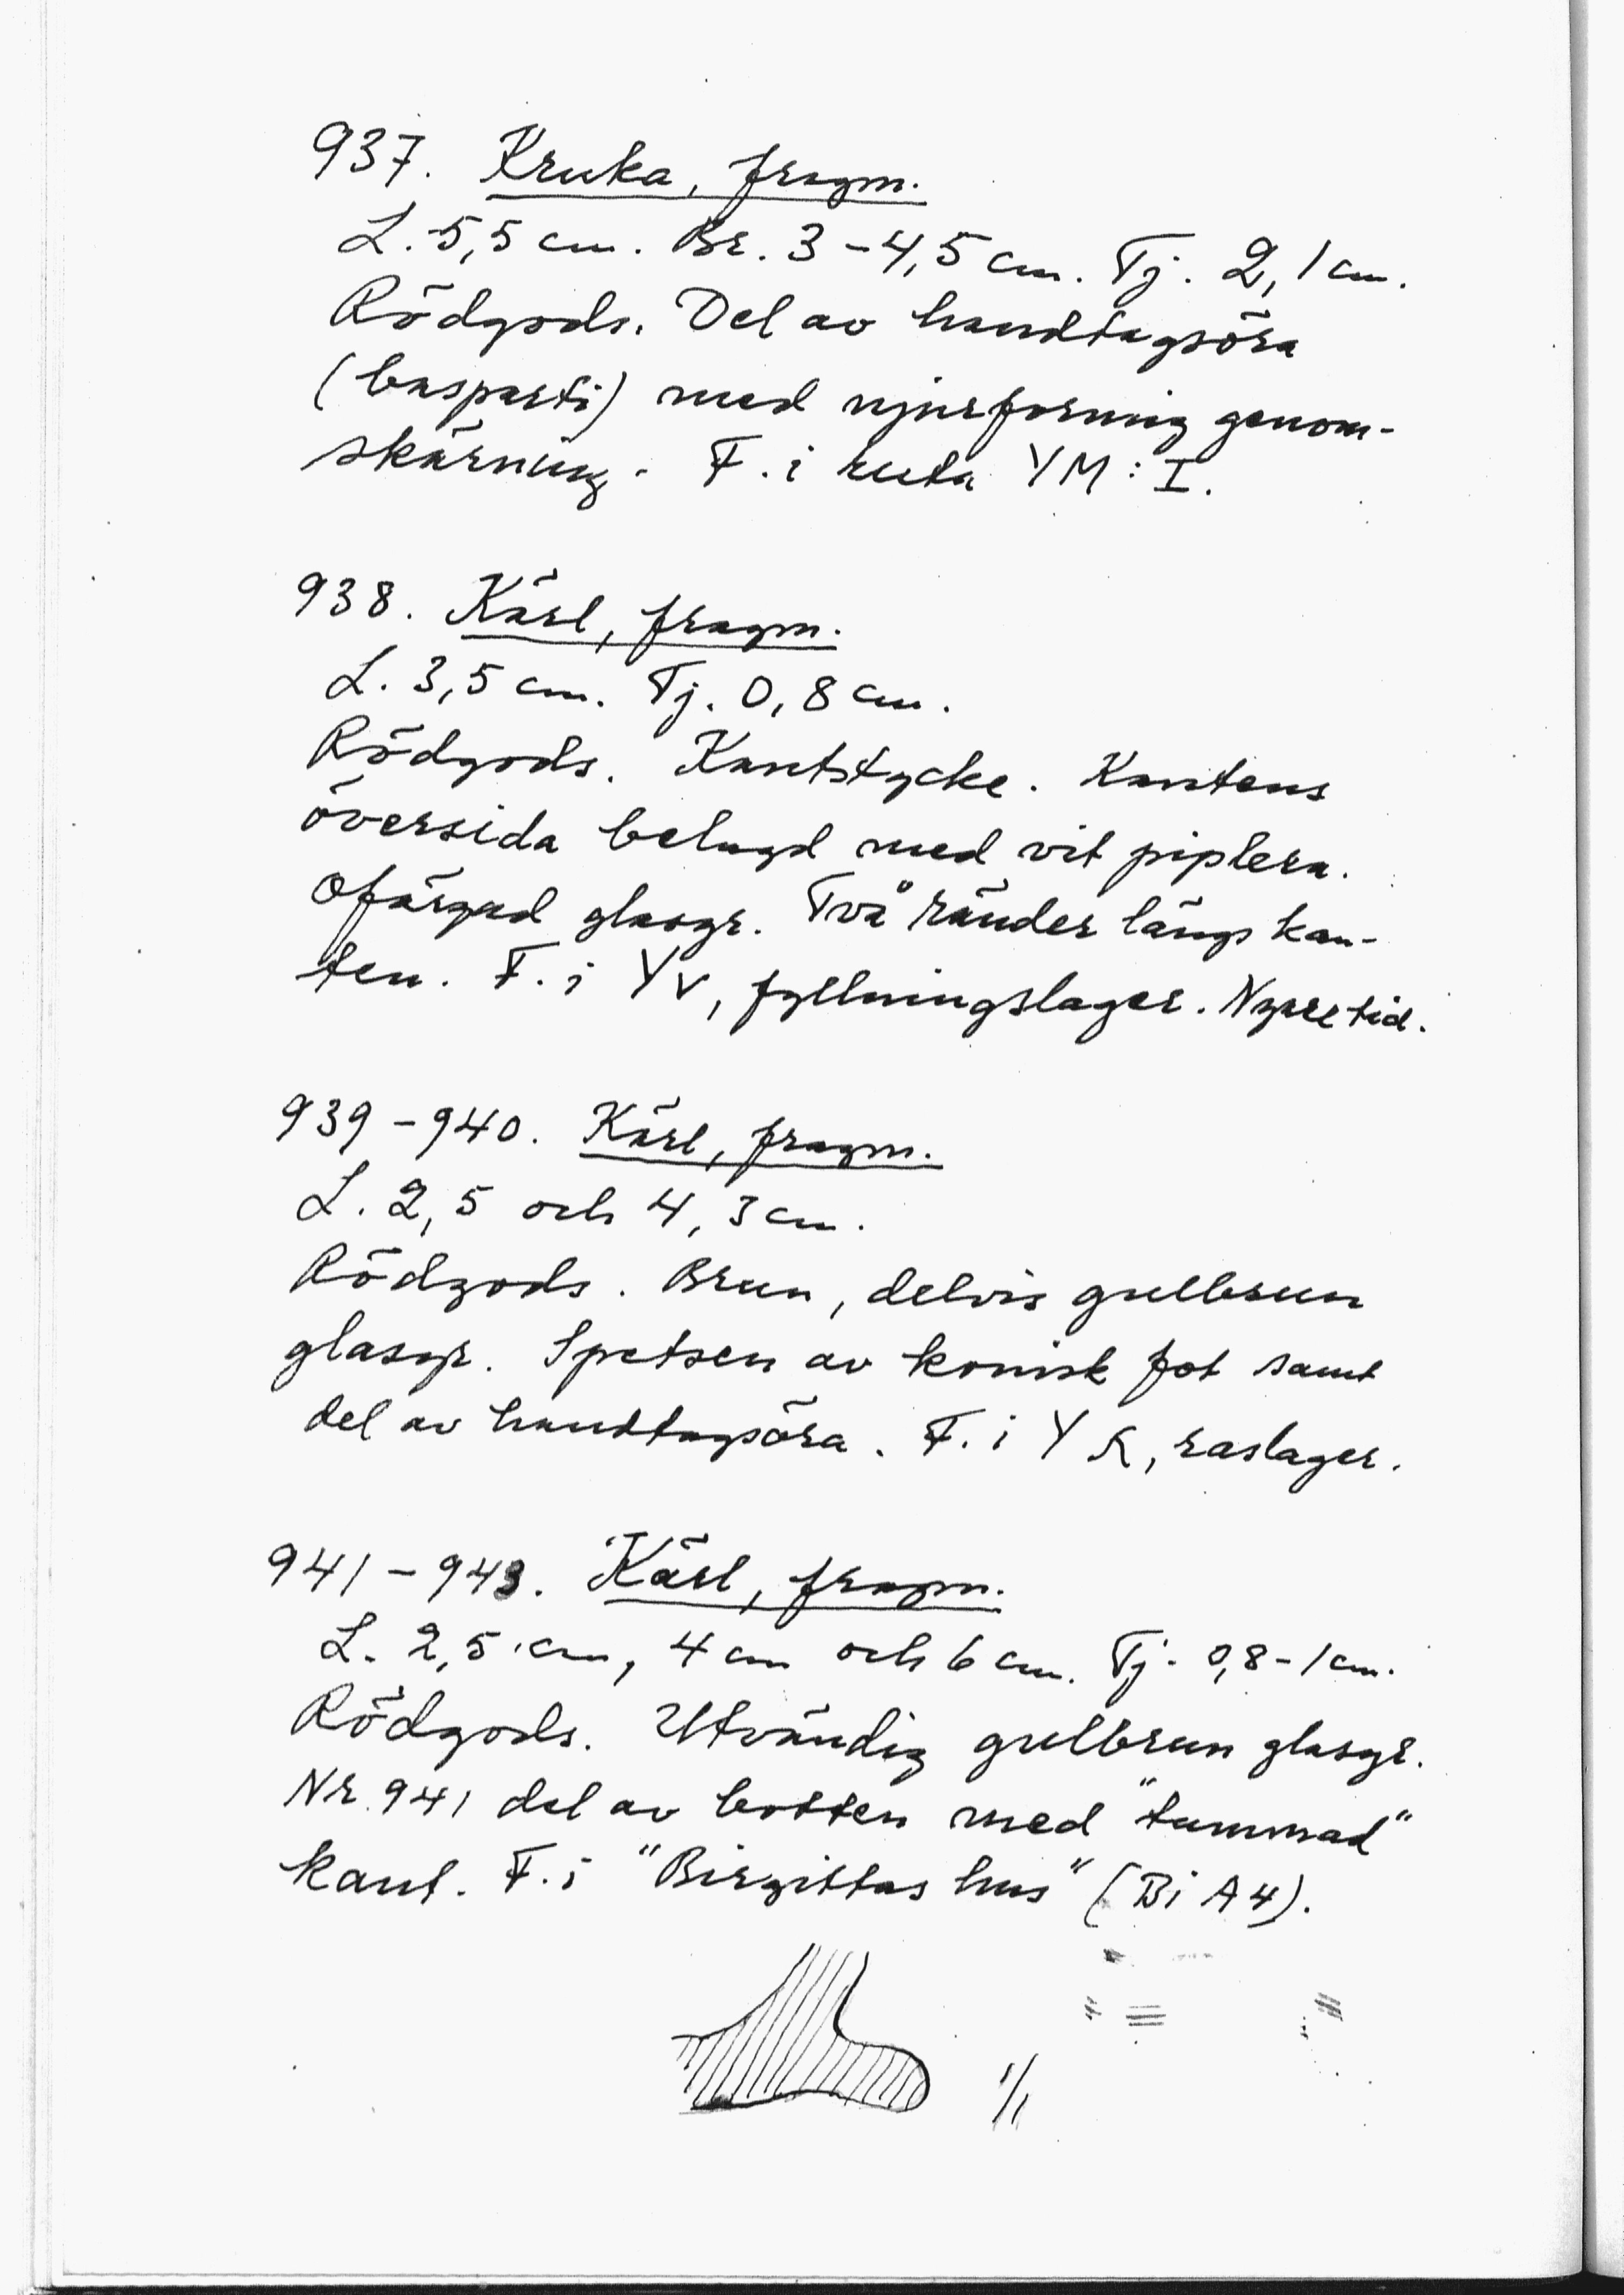 937. Kruka, fragm.
L. 5,5 cm. Br. 3-4,5 cm. Tj. 2,1 cm.
Rödgods. Del av handtagsöra
(basparti) med njurformig genom-
skärning. F. i ruta YM:I.
938. Kärl, fragm.
L. 3,5 cm. Tj. 0,8 cm.
Rödgods. Kantstycke. Kantens
översida belagd med vit piplera.
Ofärgad glasyr. Två ränder längs kan-
ten. F. i YV, fyllningslager. Nyare tid.
939-940. Kärl, fragm.
L. 2,5 och 4,3 cm.
Rödgods. Brun, delvis gulbrun
glasyr. Spetsen av konisk fot samt
del av handtagsöra. F. i YR, raslager.
941-943. Kärl, fragm.
L. 2,5 cm, 4 cm och 6 cm. Tj. 0,8-1 cm.
Rödgods. Utvändig gulbrun glasyr.
Nr. 941 del av botten med "tummad"
kant. F. i "Birgittas hus" (Bi A4).
1/1